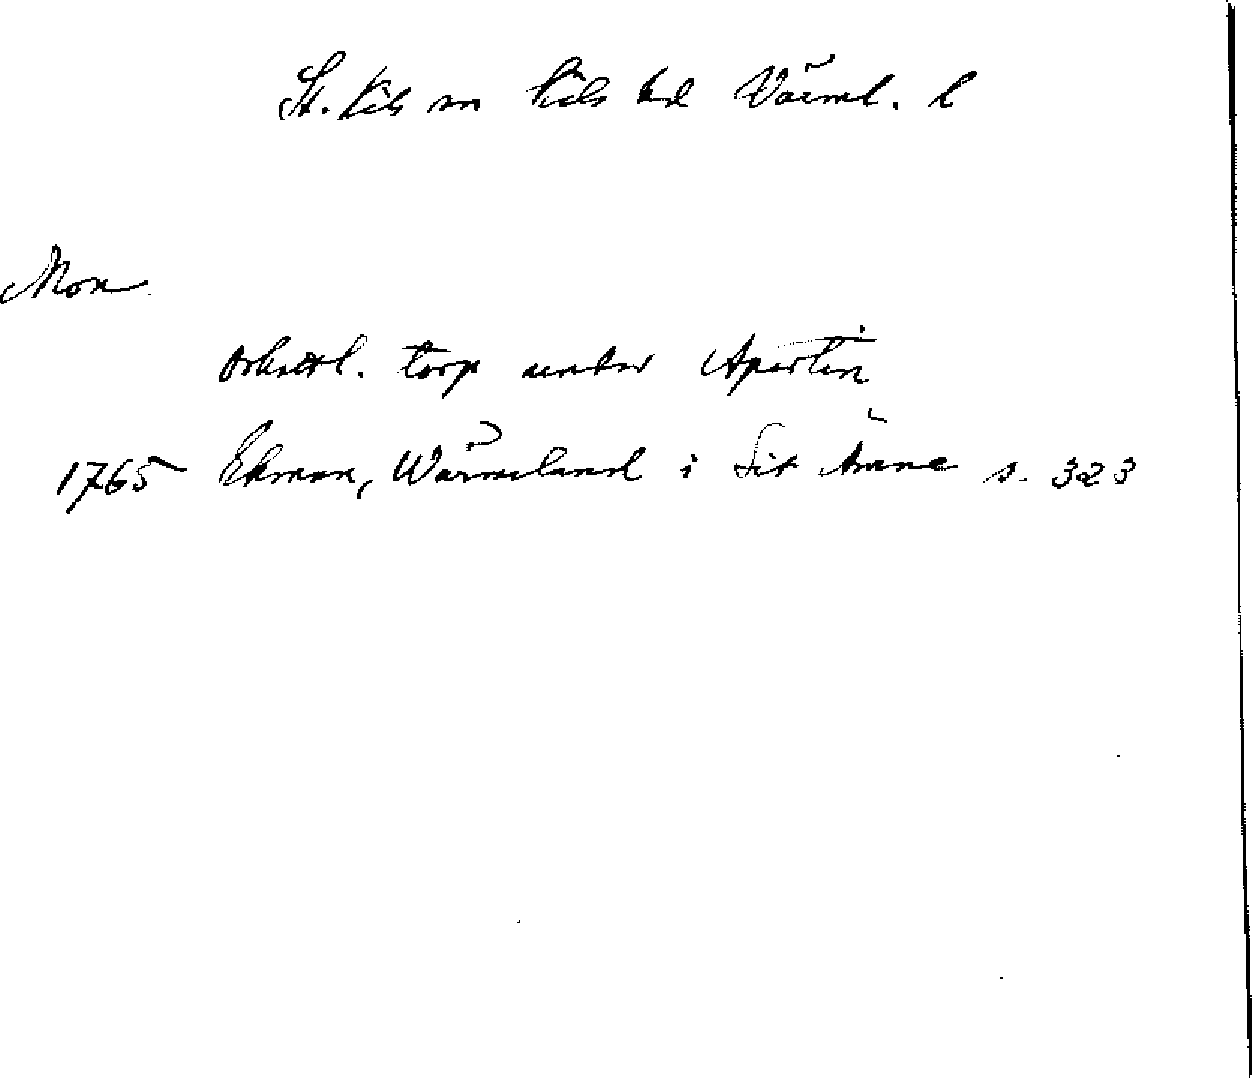 St. Kils sn Kils hd Värml. l
Mon
torp under Apertin
1765 Ekman, Wärmeland i Sit Ämne s. 323